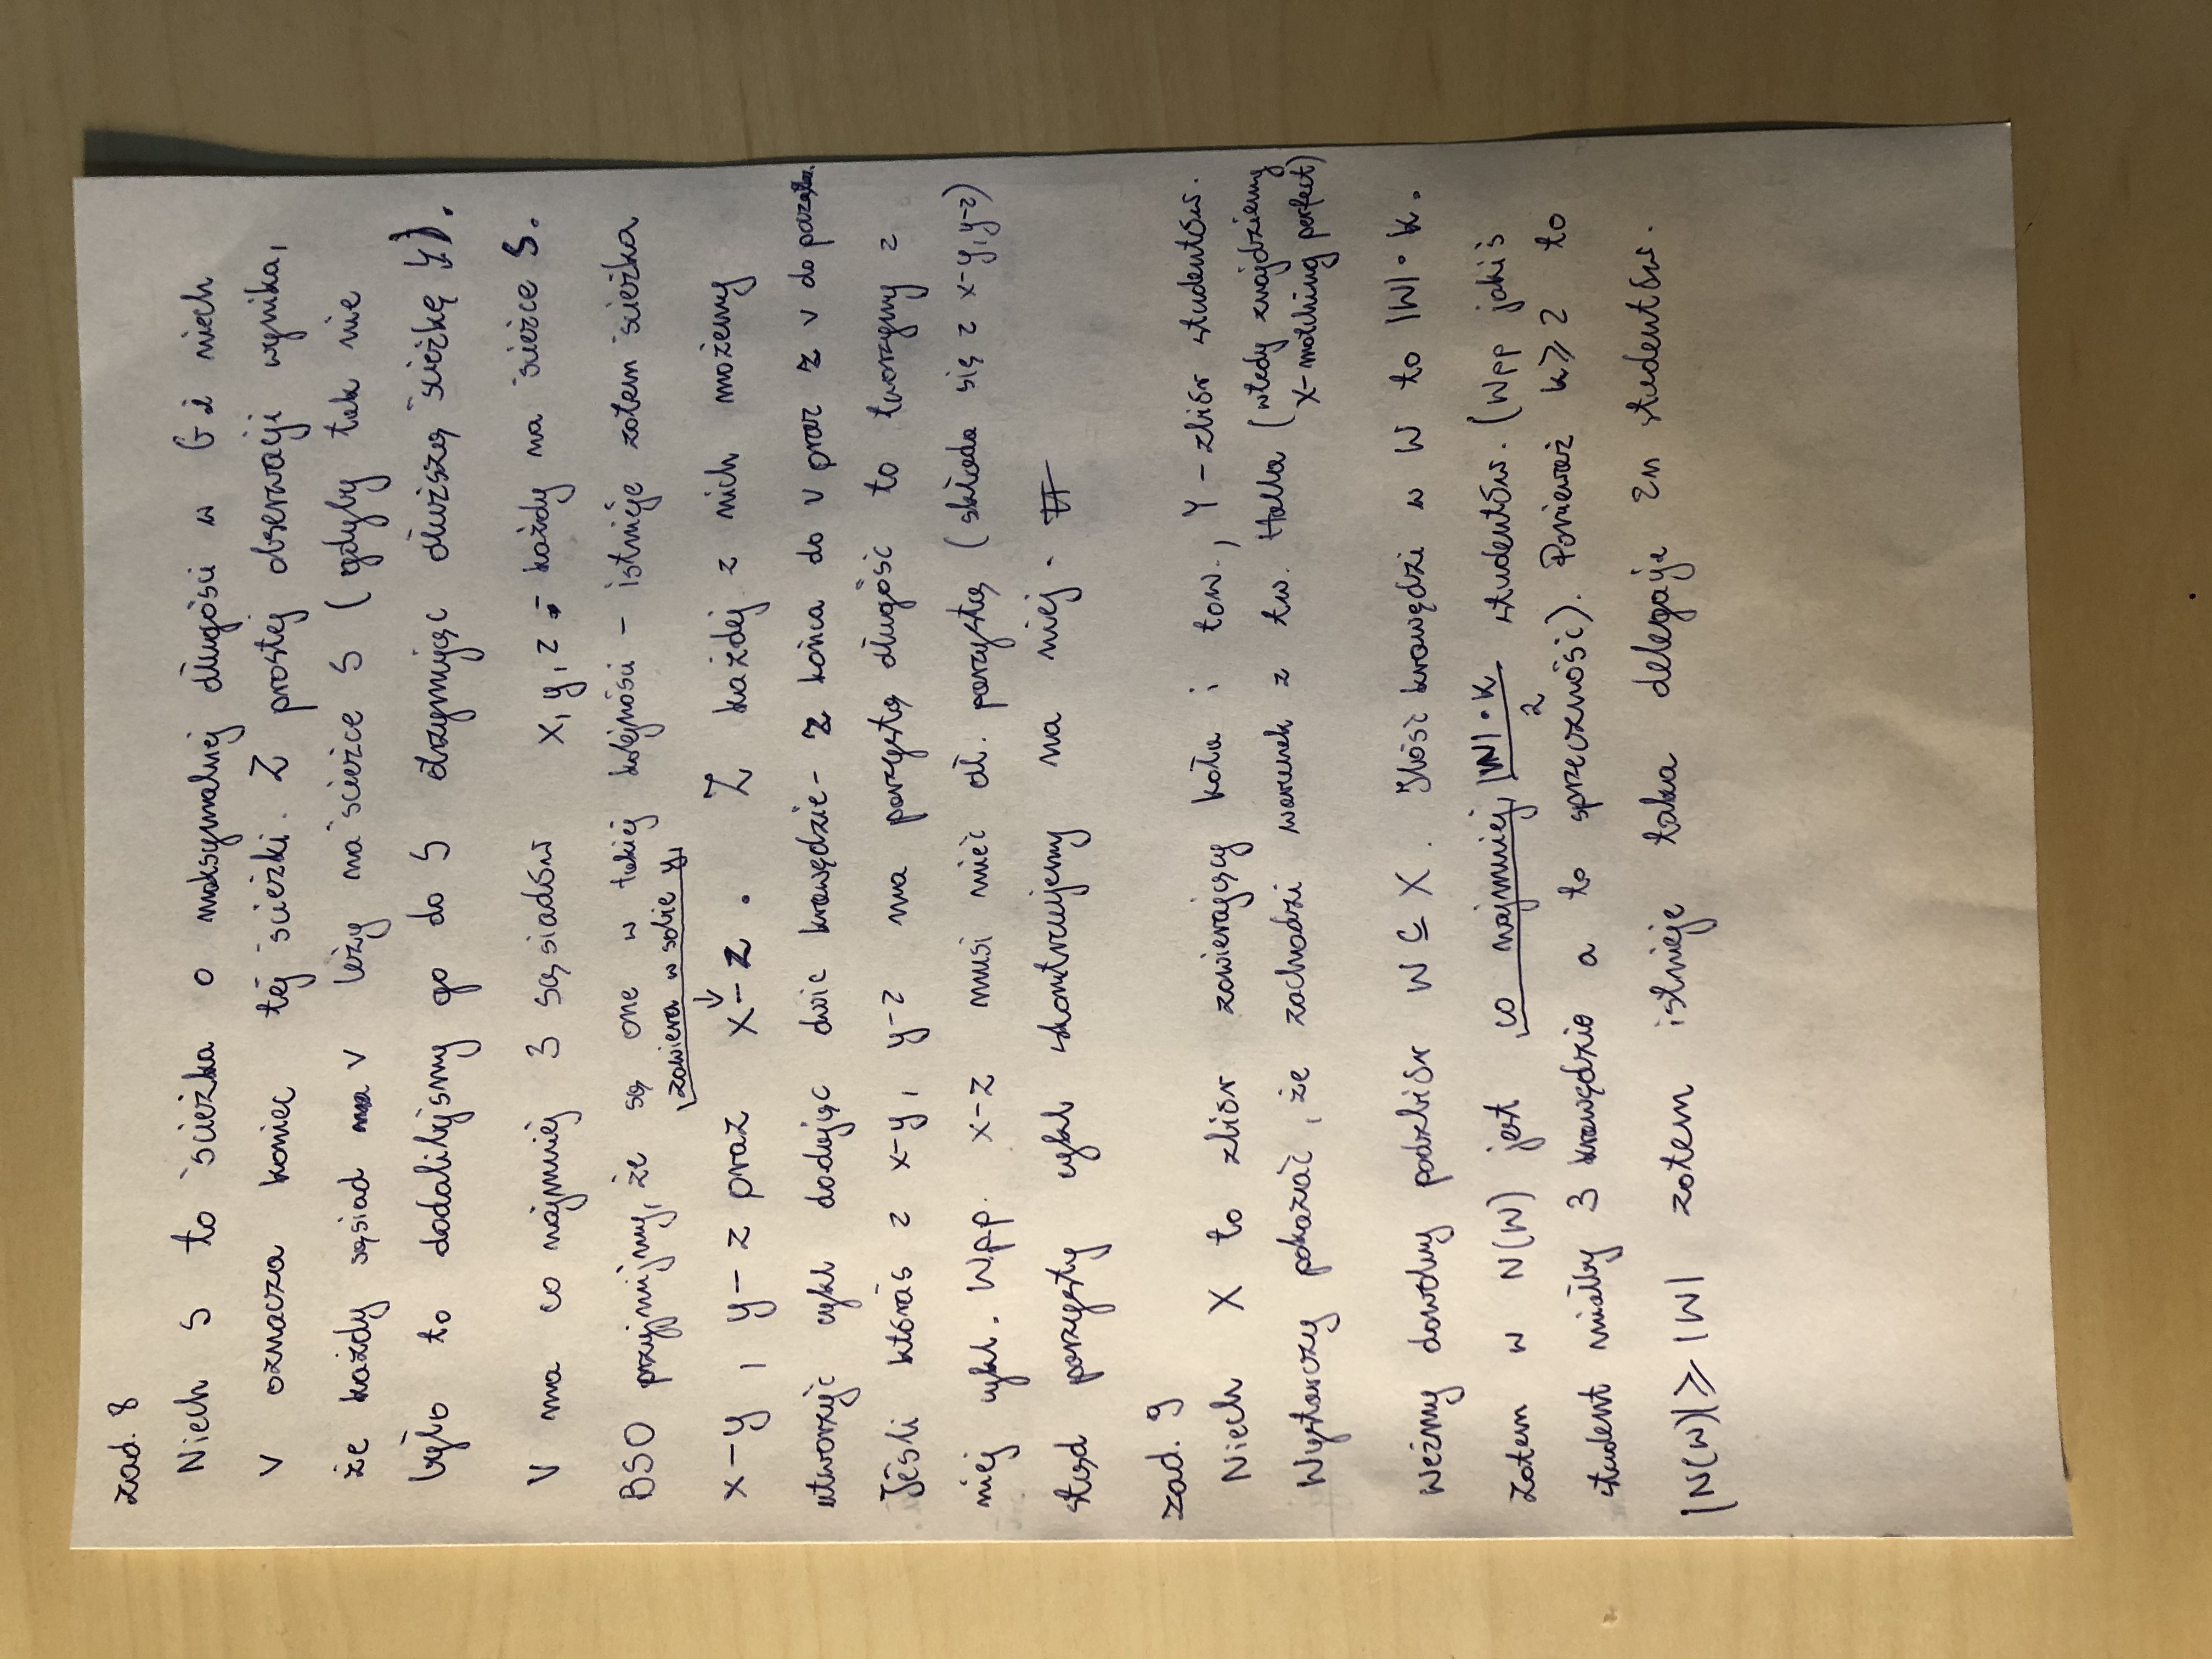 zad. 8
Niech S to ścieżka o maksymalnej długości w G i niech
V oznacza koniec tej ścieżki. Z prostej obserwacji wynika,
że każdy sąsiad v leży na ścieżce S (gdyby tak nie
było to dodalibyśmy go do S otrzymując dłuższą ścieżkę ↯).
V ma co najmniej 3 sąsiadów x, y, z - każdy na ścieżce S.
BSO przyjmijmy, że są one w takiej kolejności - istnieje zatem ścieżka
zawiera w sobie y
x-y, y-z oraz x-z. Z każdej z nich możemy
utworzyć cykl dodając dwie krawędzie - z końca do v oraz z v do początku.
Jeśli któraś z x-y, y-z ma parzystą długość to tworzymy z
niej cykl. Wpp. x-z musi mieć dł. parzystą (składa się z x-y, y-z)
stąd parzysty cykl skonstruujemy na niej.
zad. 9
Niech X to zbiór zawierający koła i tow., Y - zbiór studentów.
Wystarczy pokazać, że zachodzi warunek z tw. Halla (wtedy znajdziemy
X-matching perfect)
Weźmy dowolny podzbiór W ⊆ X. Ilość krawędzi w W to |W|·k.
Zatem w N(W) jest co najmniej |W|·k/2 studentów. (Wpp jakiś
student miałby 3 krawędzie a to sprzeczność). Ponieważ k⩾2 to
|N(W)|⩾|W| zatem istnieje taka delegacja 2n studentów.